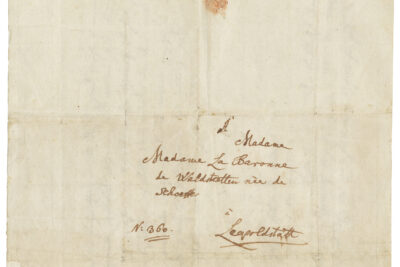 A'
Madame
Madame La Baronne
de Waldstetten née de
à
N: 360.
Leopoldstätt